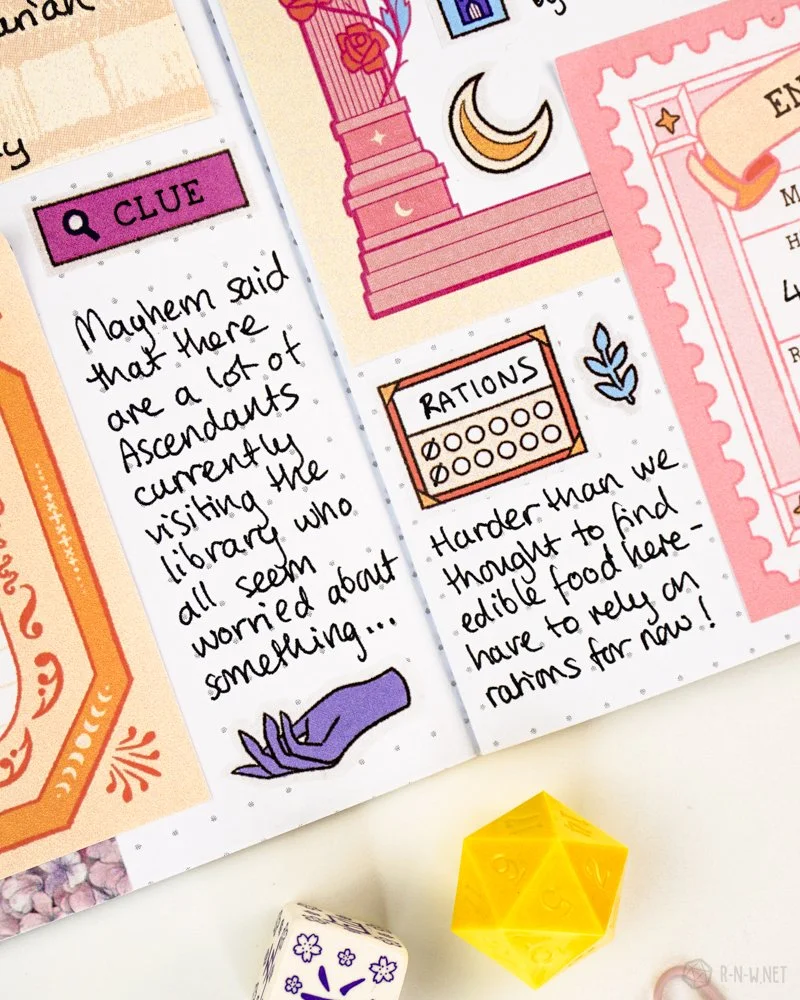 CLUE
Mayhem said
that there
are a lot of
Ascendants
currently
visiting the
library who
all seem
worried about
something...
RATIONS
Harder than we
thought to find
edible food here-
have to rely on
rations for now!
R-N-W.NET